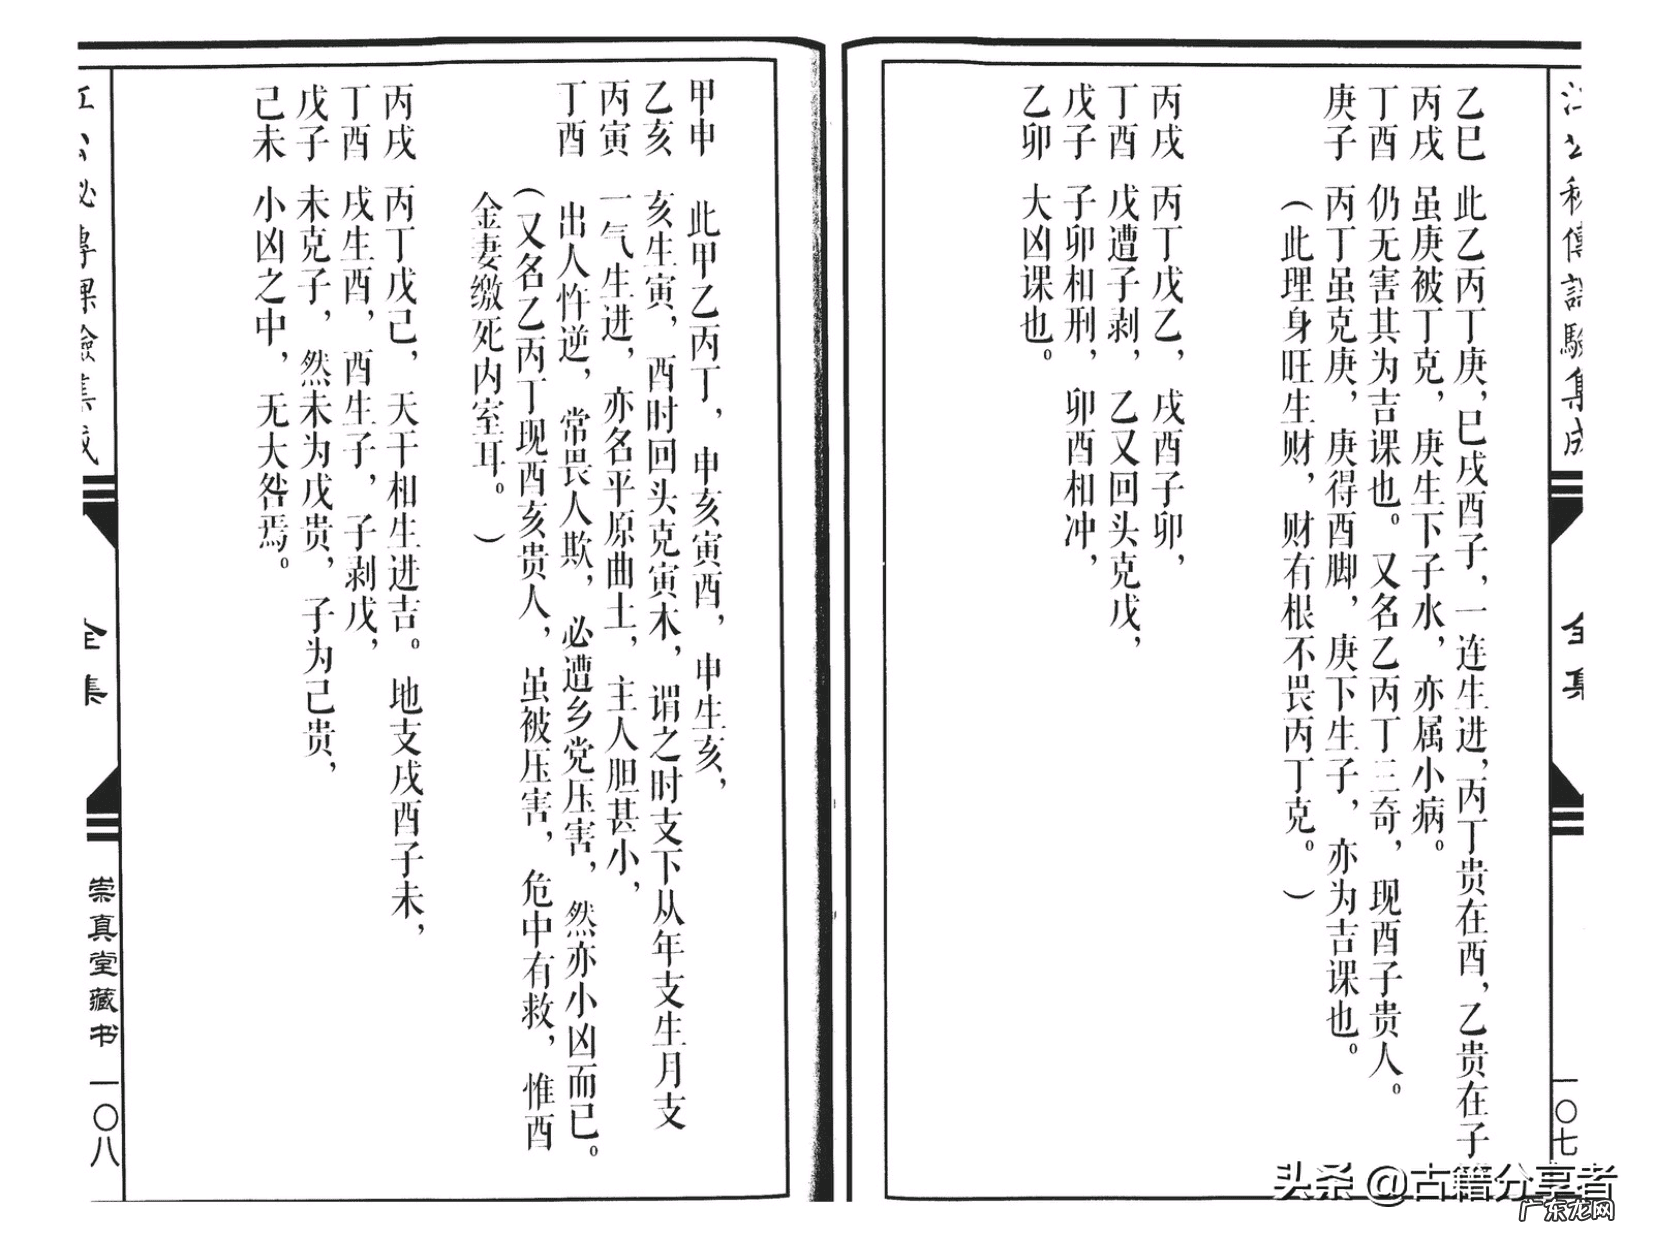 江公秘传课验集成
全集
一〇七
乙巳 此乙丙丁庚，巳戌酉子，一连生进，丙丁贵在酉，乙贵在子
丙戌 虽庚被丁克，庚生下子水，亦属小病。
丁酉 仍无害其为吉课也。又名乙丙丁三奇，现酉子贵人。
庚子 丙丁虽克庚，庚得酉脚，庚下生子，亦为吉课也。
（此理身旺生财，财有根不畏丙丁克。）
丙戌 丙丁戊乙，戌酉子卯，
丁酉 戊遭子剥，乙又回头克戊，
戊子 子卯相刑，卯酉相冲，
乙卯 大凶课也。
甲申 此甲乙丙丁，申亥寅酉，申生亥，
乙亥 亥生寅，酉时回头克寅木，谓之时支下从年支生月支
丙寅 一气生进，亦名平原曲土，主人胆甚小，
丁酉 出人忤逆，常畏人欺，必遭乡党压害，然亦小凶而已。
（又名乙丙丁现酉亥贵人，虽被压害，危中有救，惟酉
金妻缴死内室耳。）
丙戌 丙丁戊己，天干相生进吉。地支戌酉子未，
丁酉 戌生酉，酉生子，子剥戊，
戊子 未克子，然未为戊贵，子为己贵，
己未 小凶之中，无大咎焉。
江公秘专课验集成
全集
崇真堂藏书
一〇八
头条 @古籍分享者
广东龙网